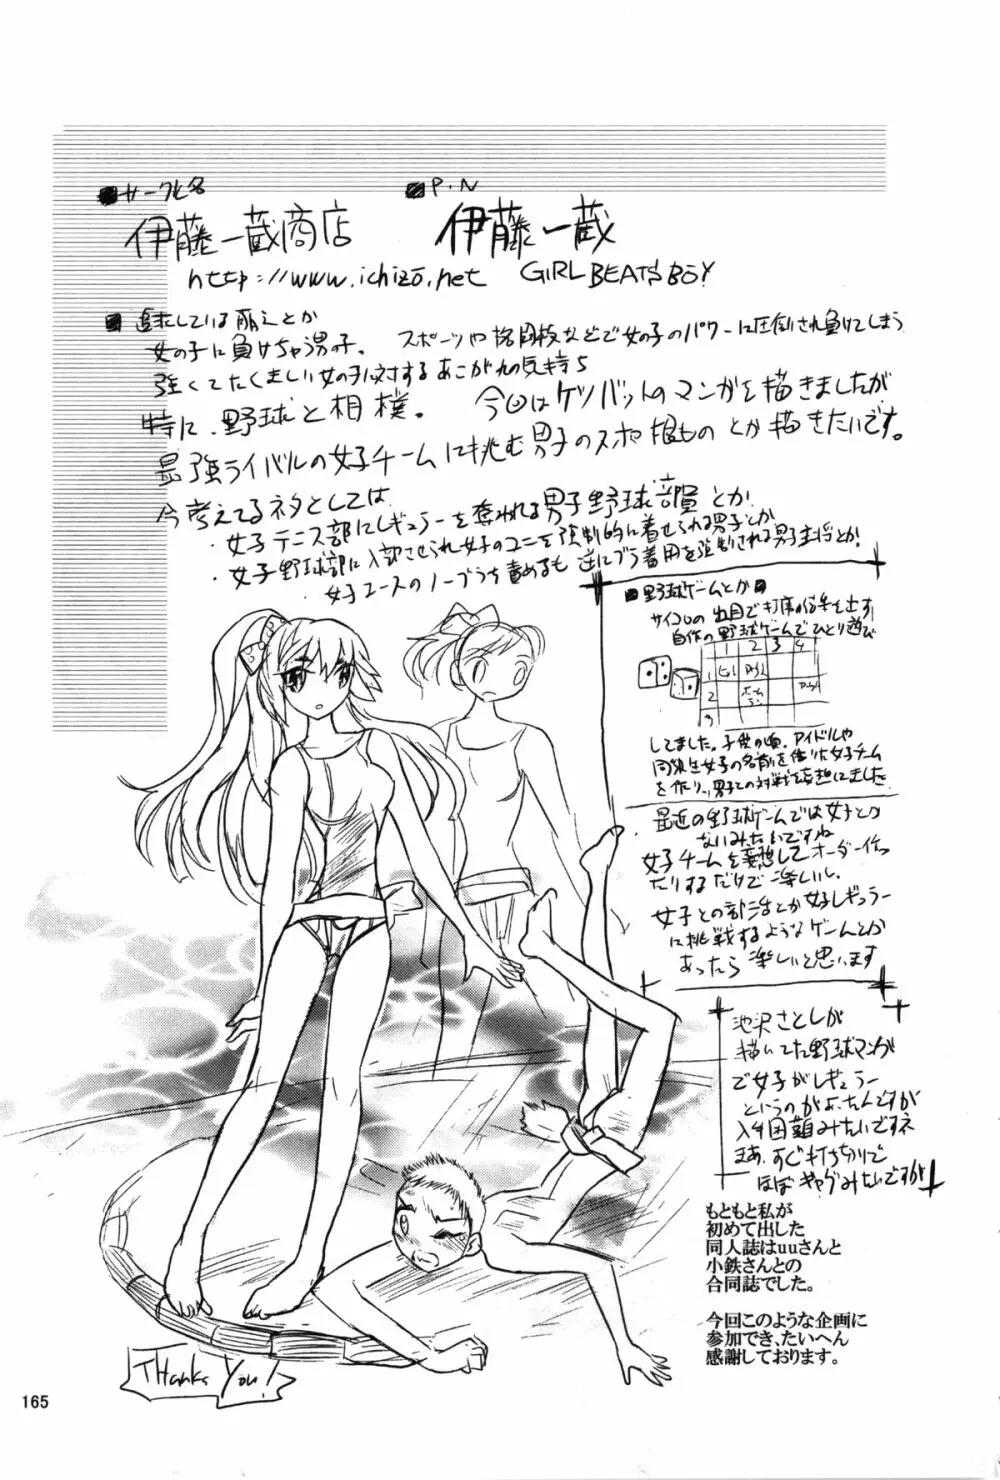 ■サークル名
伊藤一蔵商店
■P.N
伊藤一蔵
http://www.ichizo.net GIRL BEATS BOY
■追求している萌えとか
女の子に負けちゃう男子。 スポーツや格闘技などで女の子のパワーに圧倒され負けてしまう
強くてたくましい女の子に対するあこがれの気持ち
特に、野球と相撲。 今回はケツバットのマンガを描きましたが
最強ライバルの女子チームに挑む男子のスポ根ものとか描きたいです。
今考えてるネタとしては
・女子テニス部にレギュラーを奪われる男子野球部員とか
・女子野球部に入部させられ女子のユニを強制的に着せられる男子とか
・女子ユースのノーブラを責めるも逆にブラ着用を強制される男子主将とか!
■野球ゲームとか■
サイコロの出目で打席の結果を出す
自作の野球ゲームでひとり遊び
1 2 3 4
1
2 ホームラン
3
してました。子供の頃、アイドルや
同級生女子の名前を借りた女子チーム
を作り、男子との対戦を妄想しました
最近の野球ゲームでは女子とか
ないみたいですね
女子チームを妄想してオーダー作っ
たりするだけで楽しいし、
女子との部活とか女子レギュラー
に挑戦するようなゲームとか
あったら楽しいと思います
池沢さとしが
描いてた野球マンガ
で女子がレギュラー
というのがあったんですが
入手困難みたいですネ
まあ、すぐ打ちきりで
ほぼギャグみたいですが
もともと私が
初めて出した
同人誌はuuさんと
小鉄さんとの
合同誌でした。
今回このような企画に
参加でき、たいへん
感謝しております。
THanks You!
165